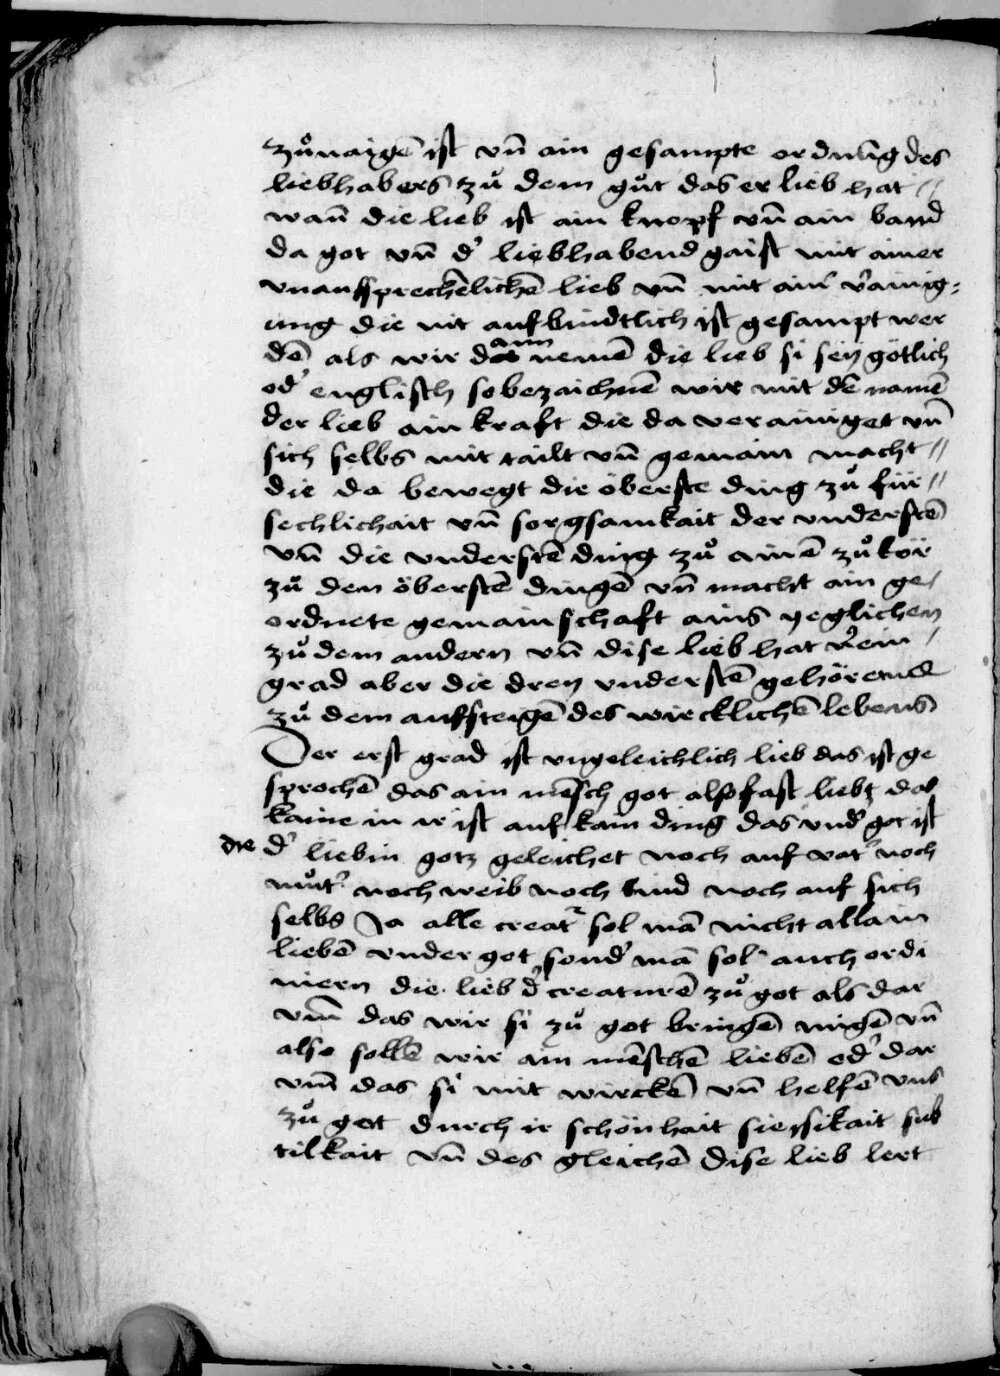 zůnaigē ist vn̄ ain gesampte ordnūg des
liebhabers zů dem gůt das er lieb hat //
wan̄ die lieb ist ain knopf vn̄ ain band
da got vn̄ d' liebhabend gaist mit ainer
vnaußsprechēlichē lieb vn̄ mit ain' v'ainig-
ung die nit aufbindtlich ist gesampt wer
dē als wir dann nemē die lieb si sey götlich
od' englisch so bezaichnē wir mit dē namē
der lieb ain kraft die da verainiget vn̄
sich selbs mit tailt vn̄ gemain macht //
die da bewegt die öberste ding zů für //
sechlichait vn̄ sorgsamkait der vnderstē
vn̄ die vnderstē ding zů ainē zůkör
zů den öberstē dingē vn̄ macht ain ge/
ordnete gemainschaft ains yeglichen
zů dem andern vn̄ dise lieb hat /
grad aber die drey vnderstē gehörend
zů dem aufsteigē des wircklichē lebens
Der erst grad ist vngeleichlich lieb das ist ge
sprochē das ain mēsch got also fast liebt das
kaine in ir ist auf kain ding das vnd' got ist
die d' liebin gotz geleichet noch auf vat' noch
můt' noch weib noch kind noch auf sich
selbs Ja alle creat' sol mā nicht allain
liebē vnder got sond' mā sol auch ordi
niern die lieb d' creaturē zů got als dar
vm̄ das wir si zů got bringē migē vn̄
also sollē wir ain mēschē liebē od' dar
vm̄ das si mit wirckē vn̄ helfē vns
zů got durch ir schönhait siessikait sub
tilkait vn̄ des gleichē dise lieb lert